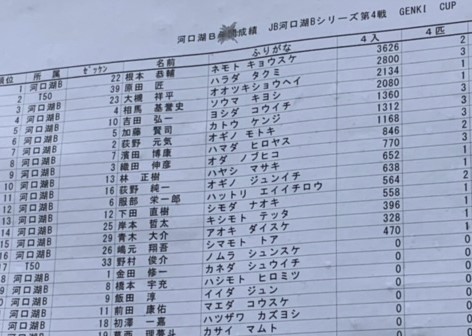 河口湖B 成績 JB河口湖Bシリーズ第4戦 GENKI CUP
順位 所属 ゼッケン 名前 ふりがな 4入 4匹
1 河口湖B 22 根本 恭輔 ネモト キョウスケ 3626
2 T50 39 原田 匠 ハラダ タクミ 2800
3 河口湖B 23 大槻 祥平 オオツキショウヘイ 2134
4 河口湖B 4 相馬 基誉史 ソウマ キヨシ 2080
5 河口湖B 10 吉田 弘一 ヨシダ コウイチ 1360
6 河口湖B 5 加藤 賢司 カトウ ケンジ 1312
7 河口湖B 2 荻野 元気 オギノ モトキ 1168
8 河口湖B 7 濱田 博康 ハマダ ヒロヤス 846
9 河口湖B 3 織田 伸彦 オダ ノブヒコ 770
10 河口湖B 13 林 正樹 ハヤシ マサキ 652
11 河口湖B 16 荻野 純一 オギノ ジュンイチ 638
12 河口湖B 6 服部 栄一郎 ハットリ エイイチロウ 564
13 河口湖B 12 下田 直樹 シモダ ナオキ 558
14 河口湖B 25 岸本 哲太 キシモト テッタ 396
15 河口湖B 29 青木 大介 アオキ ダイスケ 328
16 河口湖B 26 嶋元 翔吾 シマモト トア
17 T50 33 野村 俊介 ノムラ シュンスケ 0
河口湖B 1 金田 修一 カネダ シュウイチ 0
河口湖B 8 橋本 宇充 ハシモト ヒロミツ 0
河口湖B 9 飯田 淳 イイダ ジュン 0
河口湖B 11 前田 康佑 マエダ コウスケ 0
18 初澤 一嘉 ハツザワ カズヨシ 0
カサイ マムト